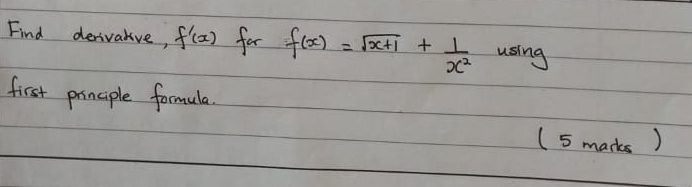 Find derivative, f'(x) for f(x) = √x+1 + 1/x² using
first principle formula.
(5 marks)